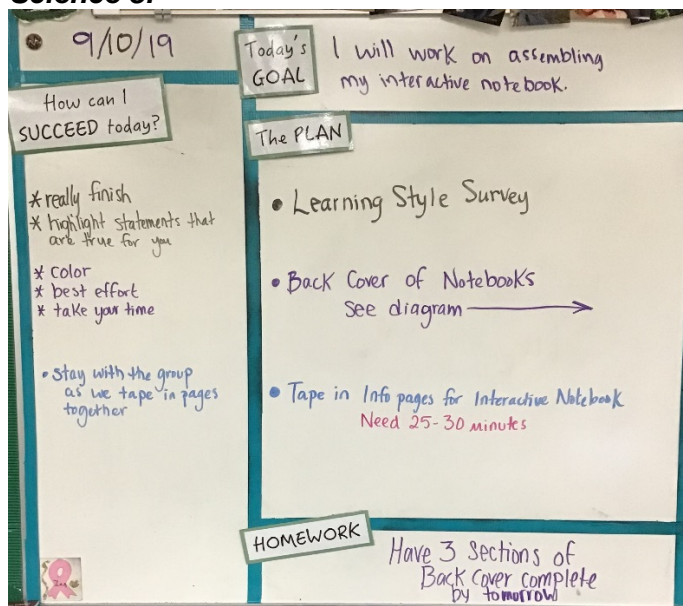 9/10/19
Today's
GOAL
I will work on assembling
my interactive notebook.
How can I
SUCCEED today?
* really finish
* highlight statements that
are true for you
* color
* best effort
* take your time
• stay with the group
as we tape in pages
together
The PLAN
• Learning Style Survey
• Back Cover of Notebooks
See diagram
• Tape in Info pages for Interactive Notebook
Need 25-30 minutes
HOMEWORK
Have 3 Sections of
Back Cover complete
by tomorrow